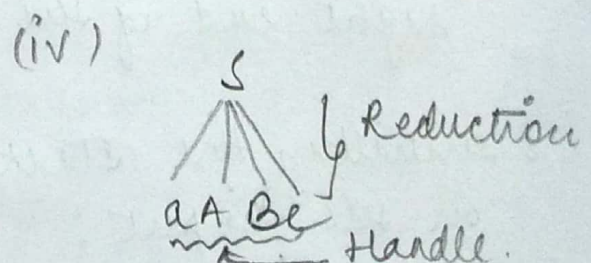 (iv)
S
Reduction
a A B e
Handle.